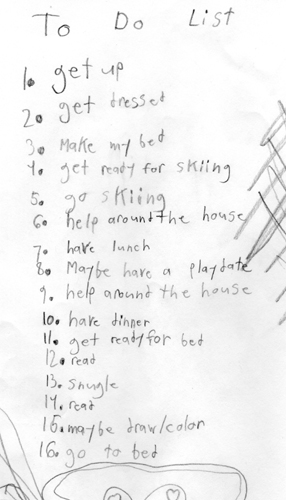 To Do List
1. get up
2. get dressed
3. Make my bed
4. get ready for skiing
5. go skiing
6. help around the house
7. have lunch
8. Maybe have a playdate
9. help around the house
10. have dinner
11. get ready for bed
12. read
13. snugle
14. read
15. maybe draw/color
16. go to bed